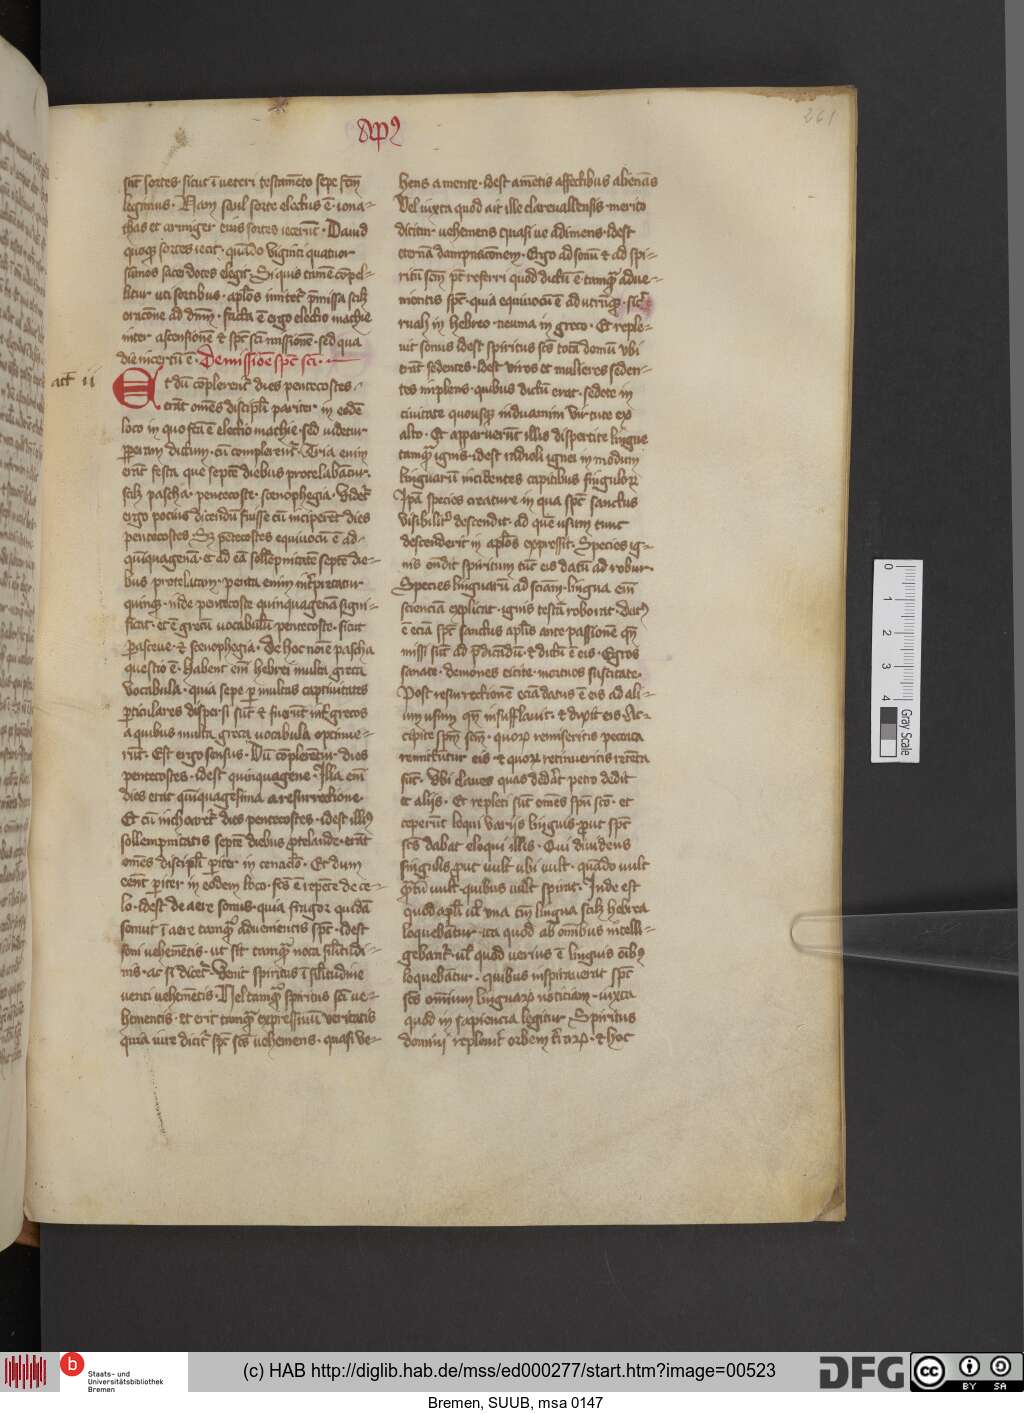 Apꝰ
261
sūt sortes sicut ī veteri testamēto sepe fc̄m
legimus · Nam saul sorte electus ē · iona-
thas et armiger eius sortes iecerūt · Dauid
quoqꝫ sortes iecit · quādo viginti quatuor
sūmos sacerdotes elegit · Si quis tamē cōpel-
litur uti sortibus · ap̄los imitet᷑ p̄missa scilꝫ
oracōne ad dn̄m · facta ē ergo electio mathie
inter ascensionē ⁊ sp̄c sc̄i missionē · sed qua
die incertū ē · De missiōe sp̄c sc̄i ·
act̄ ii
Et dū cōplerent᷑ dies pentecostes ·
erāt om̄es discipl̄i pariter in eodē
loco in quo fc̄a ē electio mathie · sed videtur
ꝑperam dictum · cū complerent᷑ · Tria enim
erāt festa que septē diebus protelabātur ·
scilꝫ pascha · pentecoste · scenophegia · videt᷑
ergo pocius dicendū fuisse cū inciperēt dies
pentecostes · Sꝫ pētecostes equiuocū ē ad
quīquagenā · et ad eā sollēpnitatē septē die-
bus protelatam · penta enim int᷑pretatur
quinqꝫ · inde pentecoste quinquagenā signi-
ficat · et ē grecū vocabulū pentecoste · sicut
ꝑasceue · ⁊ scenophegia · De hoc noīe pascha
questio ē · habent em̄ hebrei multa greca
vocabula · quia sepe ꝑ multas captiuitates
ꝑticulares dispersi sūt ⁊ fuerūt int᷑ grecos
a quibus multa greca vocabula optinue-
rūt · Est ergo sensus · Dū cōplerētur dies
pentecostes · idest quinquagene · Illa em̄
dies erat quīquagesima a resurrectione ·
Et cū inchoaret᷑ dies pentecostes · idest illiꝰ
sollempnitatis septē diebus ꝓtelande · erāt
om̄es discipl̄i ꝑiter in cenacl̄o · Et dum
eēnt ꝑiter in eodem loco · fc̄s ē repēte de ce-
lo · idest de aere sonus · quia fragor quidā
sonuit ī aere tamqꝫ aduenientis sp̄c · idest
soni vehemētis · ut sit tamqꝫ nota silitudi-
nis · ac si dicet᷑ · Venit spiritus ī silitudine
venti vehemētis · Vel tamqꝫ spiritus sc̄i ve-
hementis · et erit tamqꝫ expressiuū veritatis
quia iure dicit᷑ sp̄c sc̄s vehemens · quasi ve-
hens a mente · idest amētis affectibus alienās
Vel iuxta quod ait ille clareuallensis · merito
dicitur vehemens quasi ve adimens · idest
eternā dampnacōnem · Ergo ad sonū ⁊ ad spi-
ritū sc̄m pt̄ referri quod dictū ē · tamqꝫ adue-
nientis sp̄c · quia equiuocū ē ad utrūqꝫ · sic᷑
ruah in hebreo · neuma in greco · Et reple-
uit sonus idest spiritus sc̄s totā domū vbi
erāt sedentes · idest viros et mulieres seden-
tes implens · quibus dictū erat · sedete in
ciuitate quousqꝫ induamini virtute ex
alto · Et apparuerūt illis dispertite lingue
tamqꝫ ignis · idest radioli ignei in modum
linguarū incidentes capitibus singulorꝝ
Ip̄a species creature in qua sp̄c sanctus
visibilit᷑ descendit · ad quē usum tunc
descenderit in ap̄los expressit · Species ig-
nis ondit spiritum tūc eis datū ad robur ·
Species linguarū ad sciam · lingua em̄
scienciā explicat · ignis testā roborat · datꝰ
ē eciā sp̄c sanctus ap̄lis ante passionē qn̄
missi sūt ad p̄dicādū · ⁊ dictū ē eis · Egros
sanate · demones eicite · mortuos suscitate ·
Post resurrectionē eciā datus ē eis ad ali-
um usum · qn̄ insufflauit · ⁊ dixit eis · Ac-
cipite sp̄m sc̄m · quorꝝ remiseritis peccata
remittūtur eis · ⁊ quorꝝ retinueritis retēta
sūt · Vbi claues quas dedāt petro dedit
et alijs · Et repleti sūt om̄es sp̄u sc̄o · et
ceperūt loqui varijs linguis ꝓut sp̄c
sc̄s dabat eloqui illis · Qui diuidens
singulis ꝓut vult · ubi vult · quādo vult
q̄tū vult · quibus vult spirat · Inde est
quod ap̄li ul̄ vna tm̄ lingua scilꝫ hebrea
loquebātur · ita quod ab om̄ibus intelli-
gebant᷑ · ul̄ quod verius ē linguis oībꝰ
loquebātur · quibus inspirauerat sp̄c
sc̄s omnium linguarꝝ noticiam · iuxta
quod in sapiencia legitur · Spiritus
domini repleuit orbem t᷑rarꝝ · ⁊ hoc
0
1
2
3
4
Gray Scale
Staats- und
Universitätsbibliothek
Bremen
(c) HAB http://diglib.hab.de/mss/ed000277/start.htm?image=00523
DFG
cc BY SA
Bremen, SUUB, msa 0147